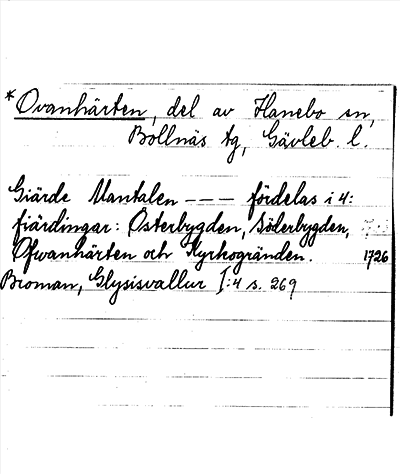 * Ovanhärten, del av Hanebo sn,
Bollnäs tg, Gävleb. l.
Giärde Mantalen --- fördelas i 4:
fiärdingar: Österbygden, Söderbygden,
Ofwanhärten och Kyrkogränden. 1726
Broman, Glysisvallur I:4 s. 269